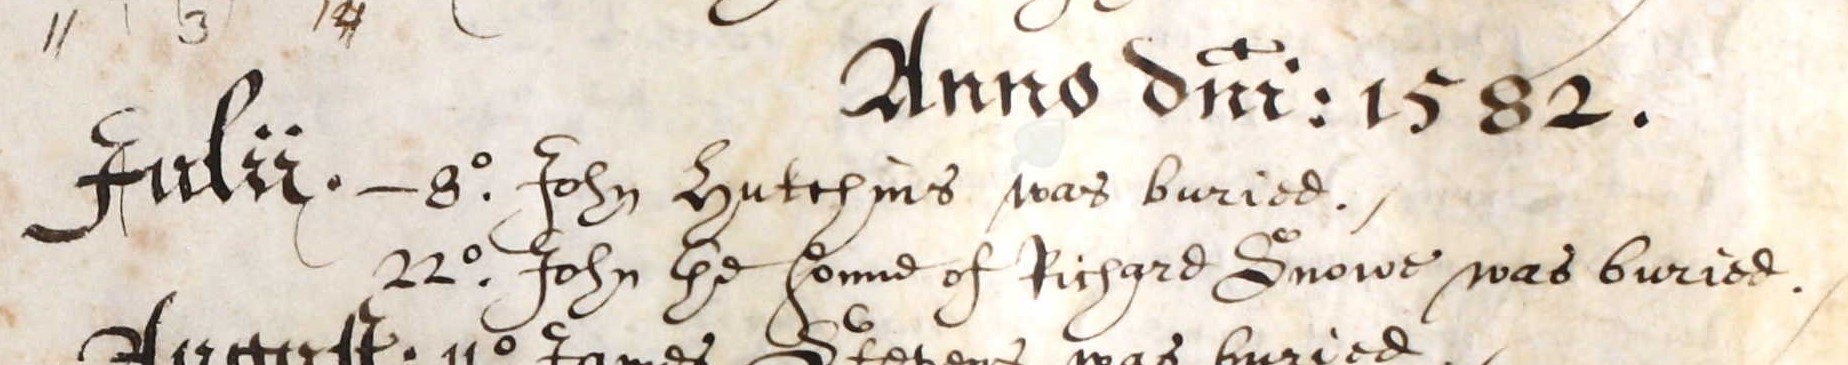 11 3 14
Anno dñi: 1582.
Julii. – 8º. John Hutchins was buried.
22º. John the sonne of Richard Snowe was buried.
August. 11º James Stevens was buried.